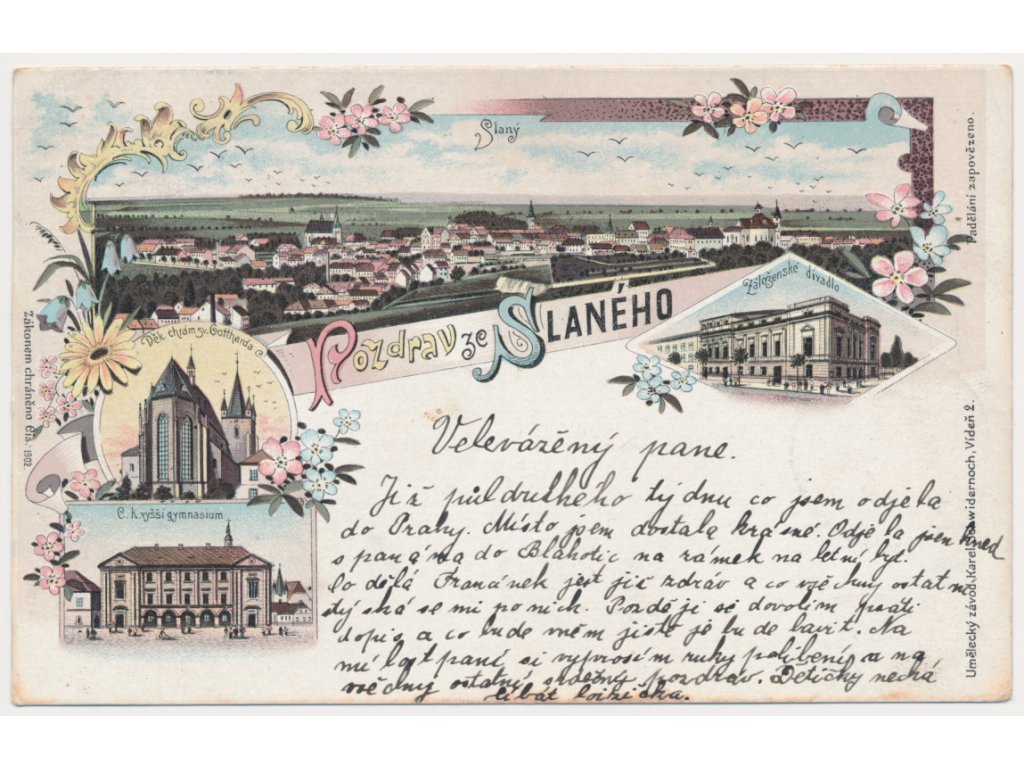 Slaný
Padělání zapovězeno.
Záloženské divadlo
Pozdrav ze SLANÉHO
Děk. chrám sv. Gottharda
Zákonem chráněno Čís. 1902
C. K. vyšší gymnasium
Velevážěný pane.
Již půldruhého týdnu co jsem odjela
do Prahy. Místo jsem dostala krásné. Odjela jsem hned
s panáma do Blahotic na zámek na letní byt.
Co dělá Francínek jest již zdráv a co všěchny ostatní
stýská se mi po nich. Pozděj si dovolím psáti
dopis a co bude v něm jistě je bude bavit. Na
mílost paní si vyprosím ruky políbení a na
všěchny ostatní srděčný pozdrav. Detičky nechá
líbat
Umělecký závod, Karel Schwidernoch, Vídeň 2.